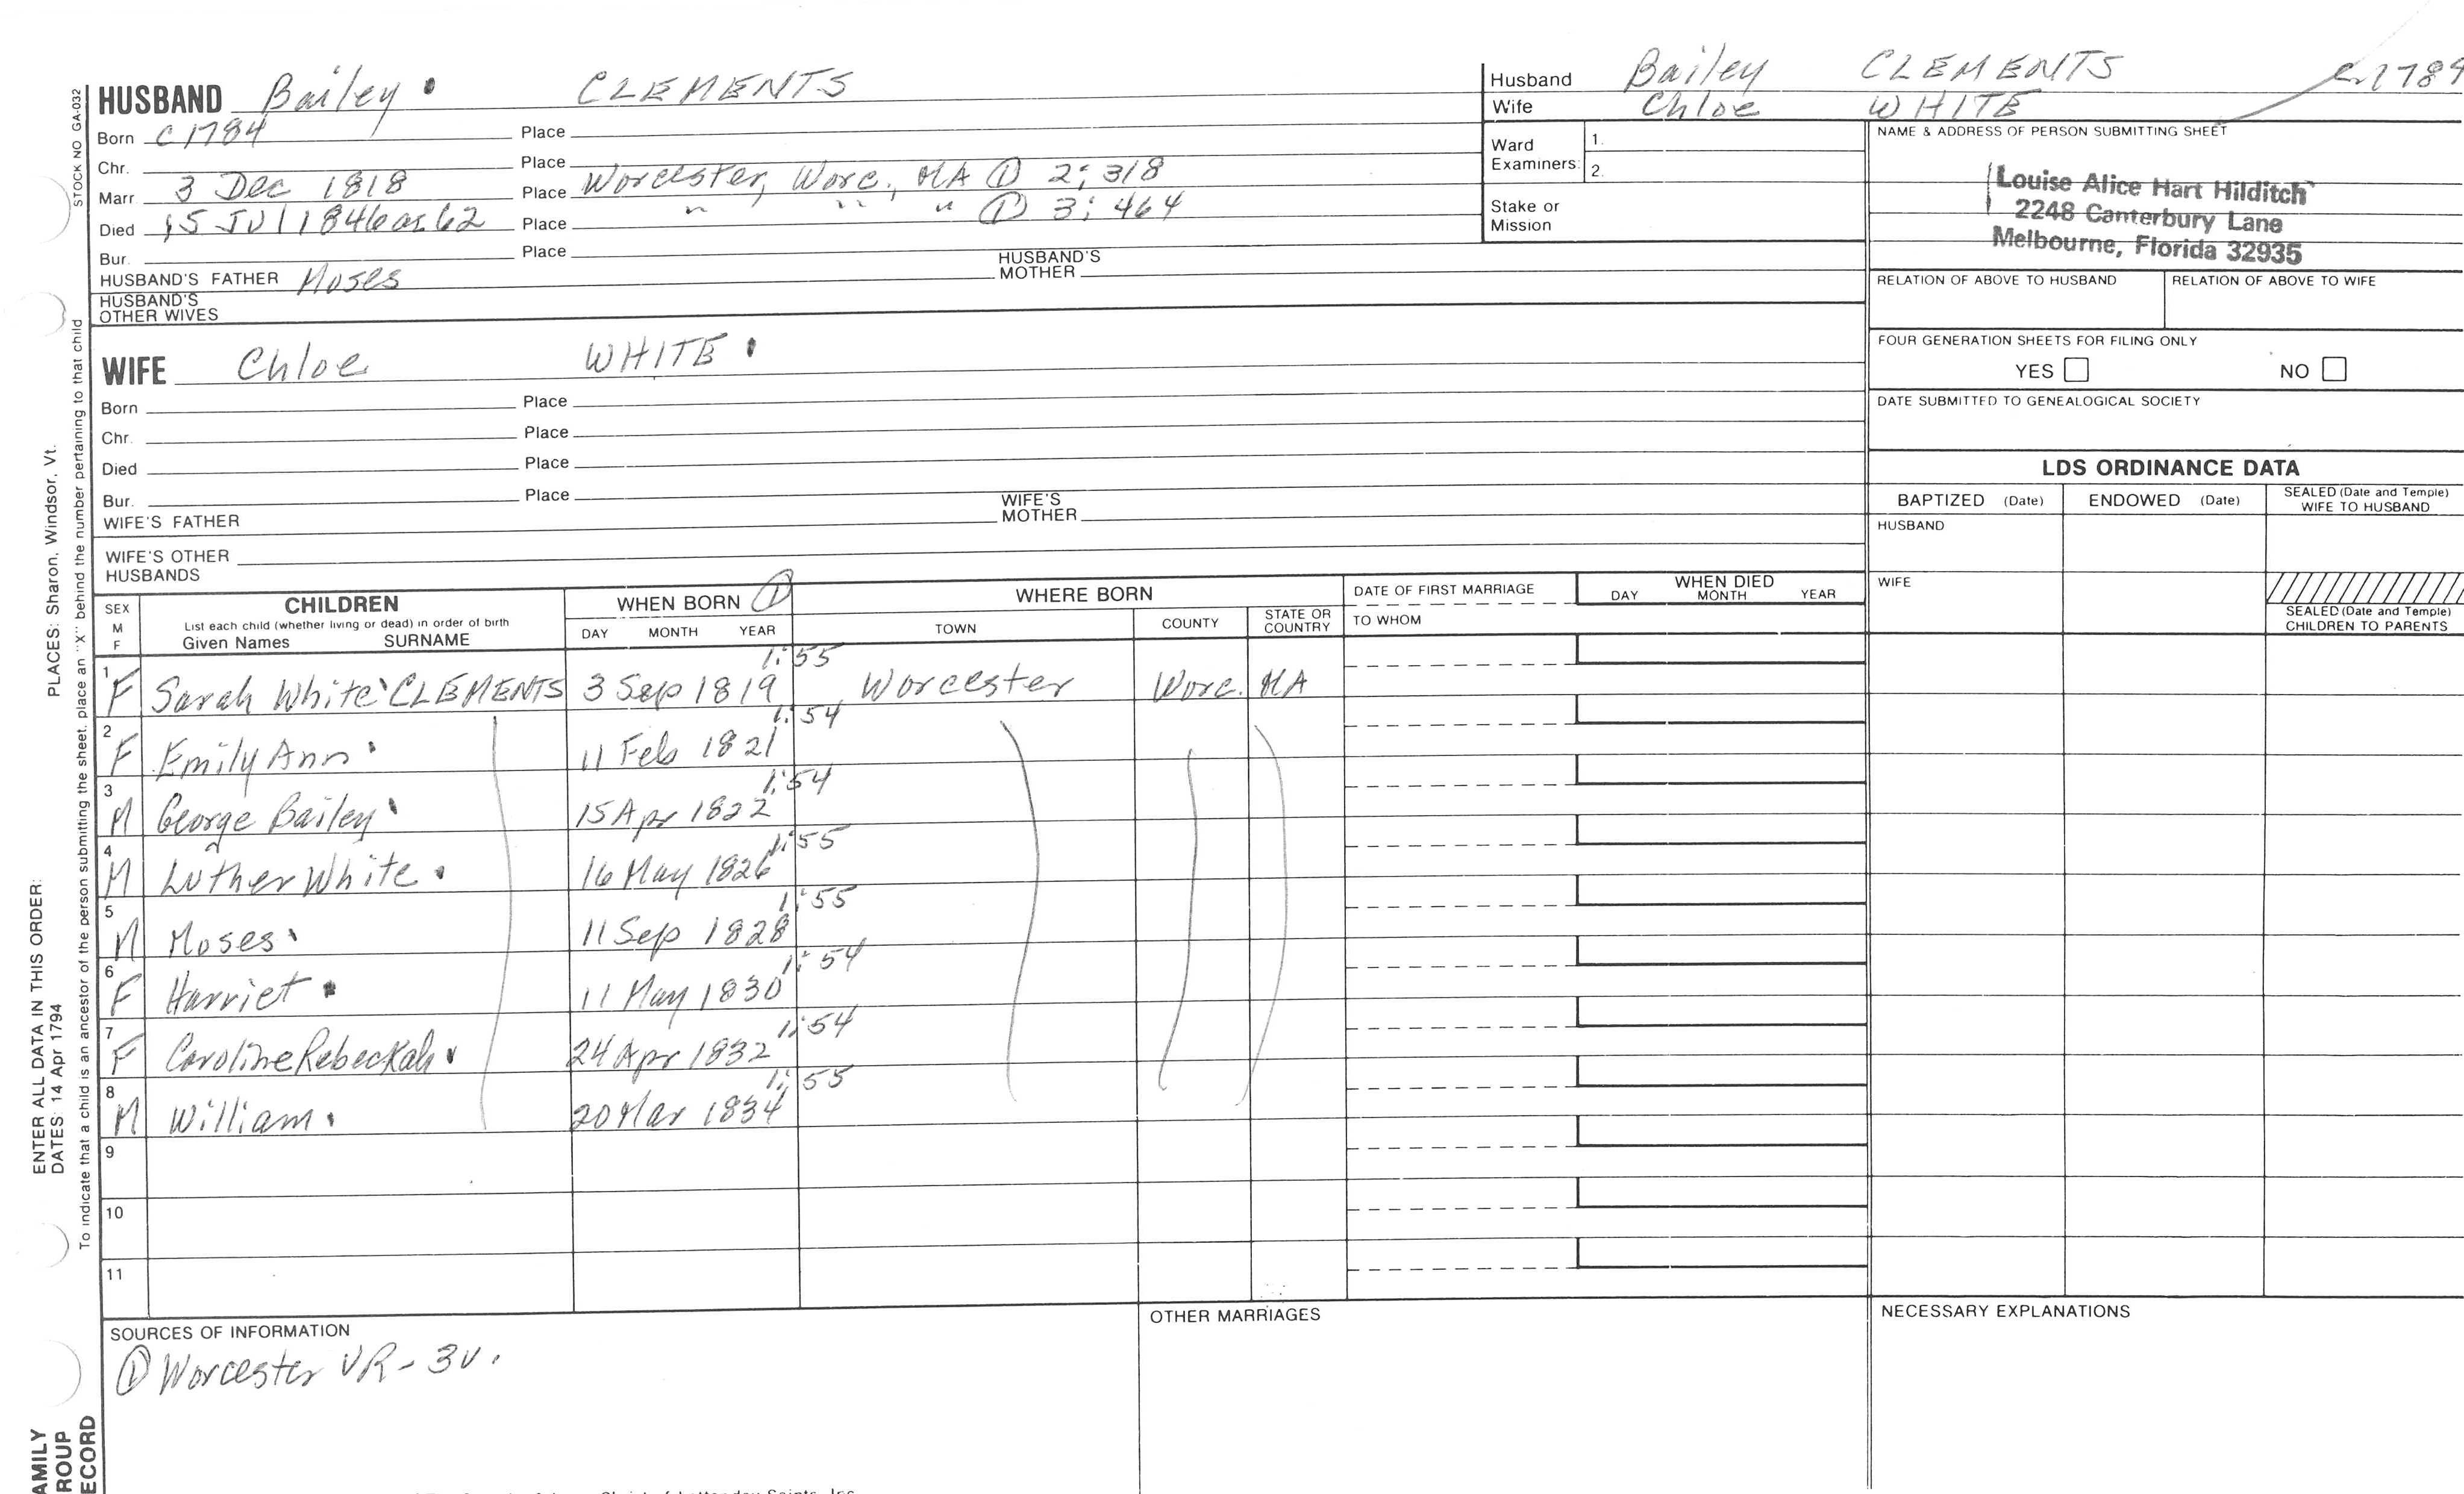 HUSBAND Bailey CLEMENTS
Born c1784 Place
Chr. Place
Marr. 3 Dec 1818 Place Worcester, Worc., MA ① 2:318
Died 15 Jul 1846 ae 62 Place " " " ① 3:464
Bur. Place
HUSBAND'S FATHER Moses HUSBAND'S MOTHER
HUSBAND'S OTHER WIVES
WIFE Chloe WHITE
Born Place
Chr. Place
Died Place
Bur. Place
WIFE'S FATHER WIFE'S MOTHER
WIFE'S OTHER HUSBANDS
Husband Bailey CLEMENTS
Wife Chloe WHITE
Ward Examiners: 1.
2.
Stake or Mission
NAME & ADDRESS OF PERSON SUBMITTING SHEET
Louise Alice Hart Hilditch
2248 Canterbury Lane
Melbourne, Florida 32935
RELATION OF ABOVE TO HUSBAND RELATION OF ABOVE TO WIFE
FOUR GENERATION SHEETS FOR FILING ONLY
YES NO
DATE SUBMITTED TO GENEALOGICAL SOCIETY
LDS ORDINANCE DATA
BAPTIZED (Date) ENDOWED (Date) SEALED (Date and Temple) WIFE TO HUSBAND
HUSBAND
WIFE
SEALED (Date and Temple) CHILDREN TO PARENTS
SEX M F CHILDREN WHEN BORN ① WHERE BORN DATE OF FIRST MARRIAGE WHEN DIED
List each child (whether living or dead) in order of birth
Given Names SURNAME DAY MONTH YEAR TOWN COUNTY STATE OR COUNTRY TO WHOM DAY MONTH YEAR
1 F Sarah White CLEMENTS 3 Sep 1819 1:55 Worcester Worc. MA
2 F Emily Ann 11 Feb 1821 1:54
3 M George Bailey 15 Apr 1822 1:54
4 M Luther White 16 May 1826 1:55
5 M Moses 11 Sep 1828 1:55
6 F Harriet 11 May 1830 1:54
7 F Caroline Rebeckah 24 Apr 1832 1:54
8 M William 20 Mar 1834 1:55
9
10
11
SOURCES OF INFORMATION
① Worcester VR - 3v.
OTHER MARRIAGES
NECESSARY EXPLANATIONS
STOCK NO GA-032
To indicate that a child is an ancestor of the person submitting the sheet, place an "X" behind the number pertaining to that child
ENTER ALL DATA IN THIS ORDER:
DATES: 14 Apr 1794
PLACES: Sharon, Windsor, Vt.
AMILY
ROUP
ECORD